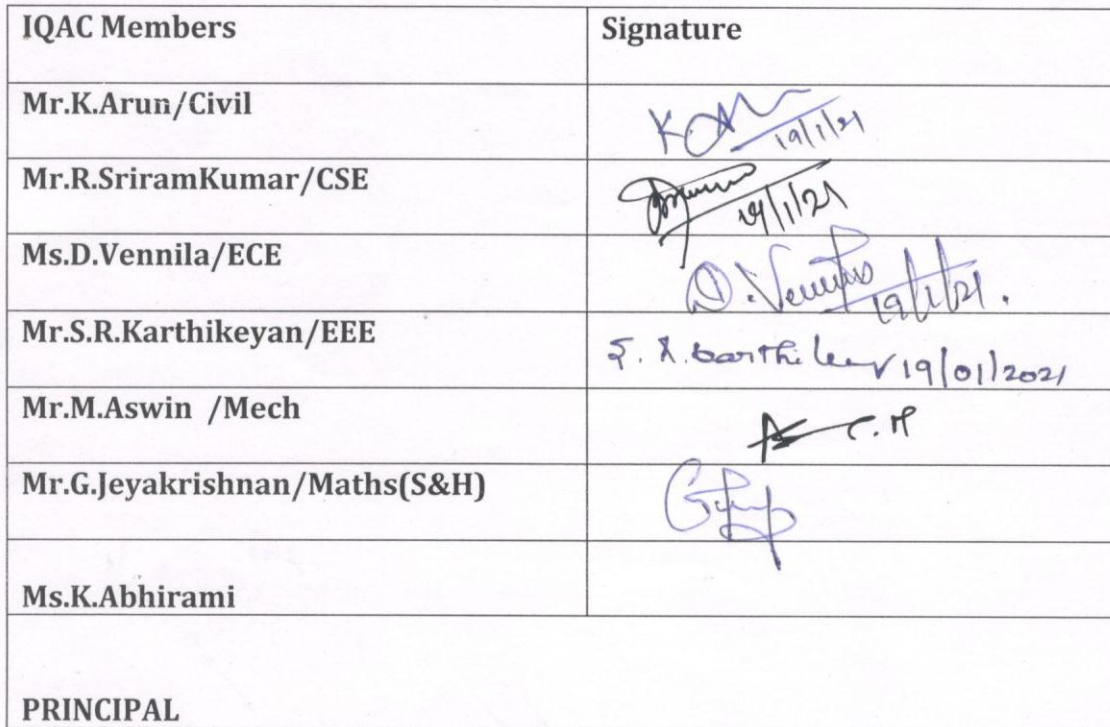 IQAC Members Signature
Mr.K.Arun/Civil K. 19/1/21
Mr.R.SriramKumar/CSE 19/1/21
Ms.D.Vennila/ECE D. 19/1/21.
Mr.S.R.Karthikeyan/EEE 19/01/2021
Mr.M.Aswin /Mech
Mr.G.Jeyakrishnan/Maths(S&H)
Ms.K.Abhirami
PRINCIPAL